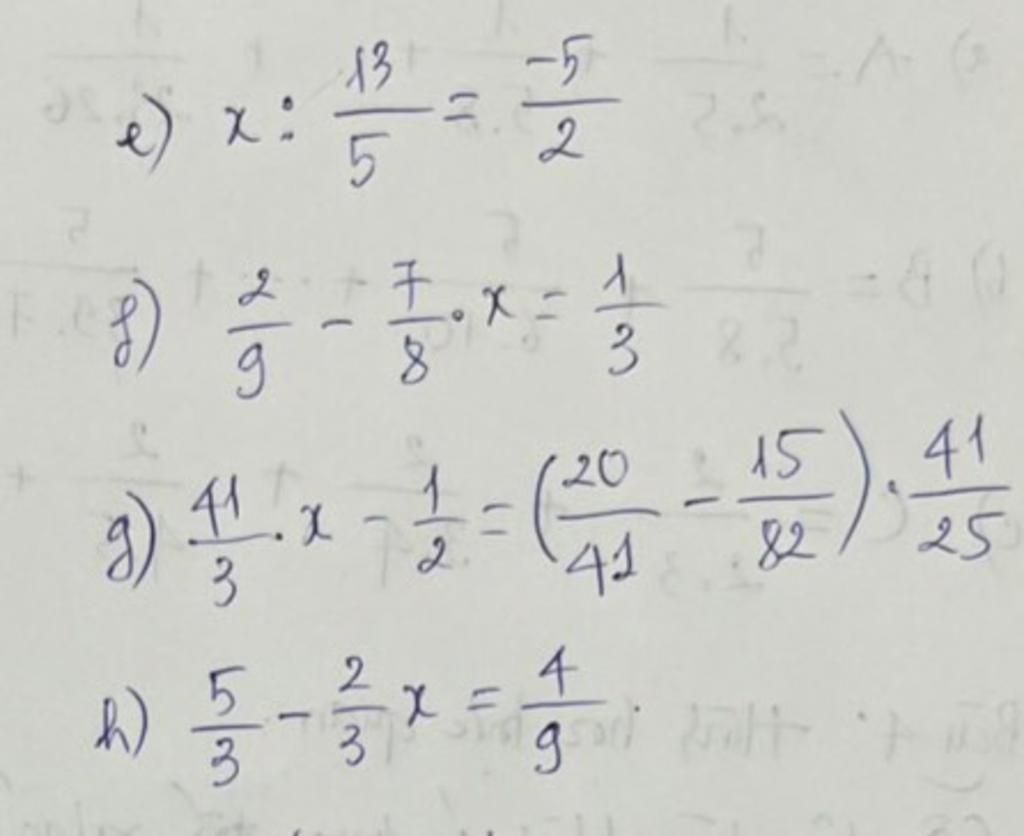 e) x : 13/5 = -5/2
f) 2/9 - 7/8 . x = 1/3
g) 41/3 . x - 1/2 = (20/41 - 15/82) . 41/25
h) 5/3 - 2/3 x = 4/9 .